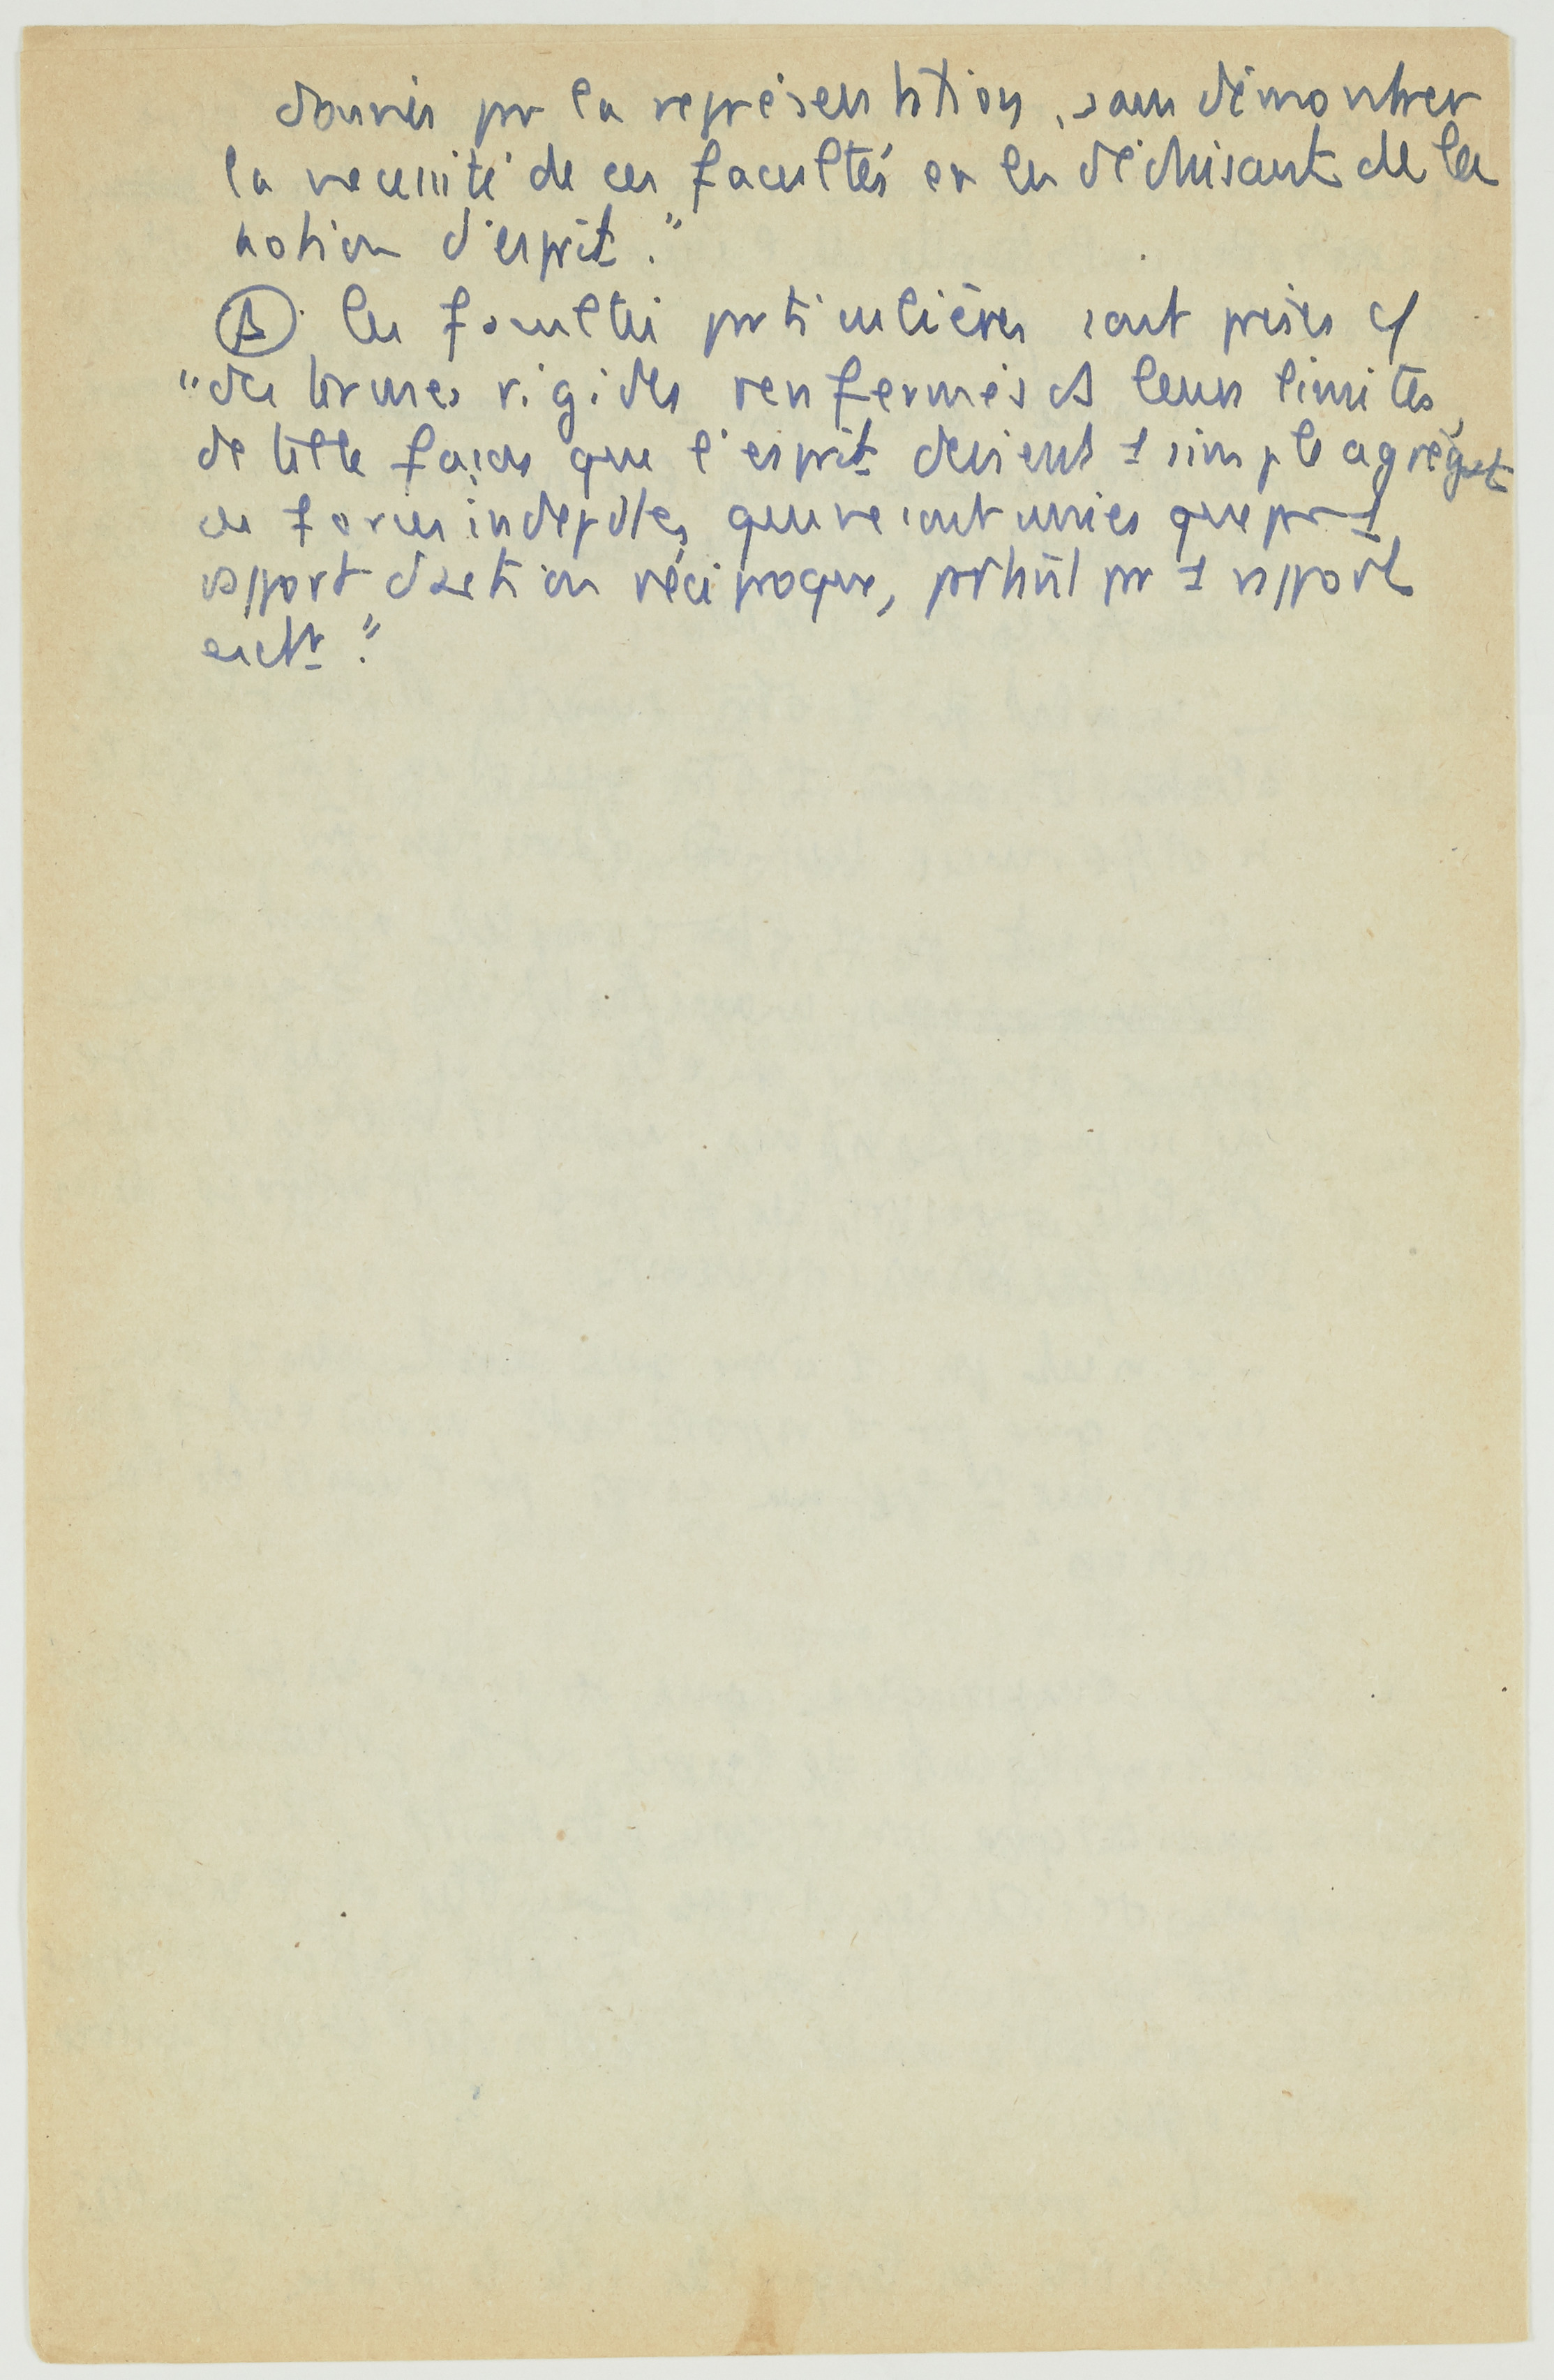 donnés pr la représentation, sans démontrer
la necessité de ces facultés en les déduisant de la
notion d'esprit."
Les facultés prticulières sont prises
"des termes rigides renfermés ds leurs limites,
de telle façon que l'esprit devient 1 simple agrégat
de forces indepdtes, qui ne sont unies que pr 1
rapport d'action réciproque, prtant pr 1 rapport
extr."